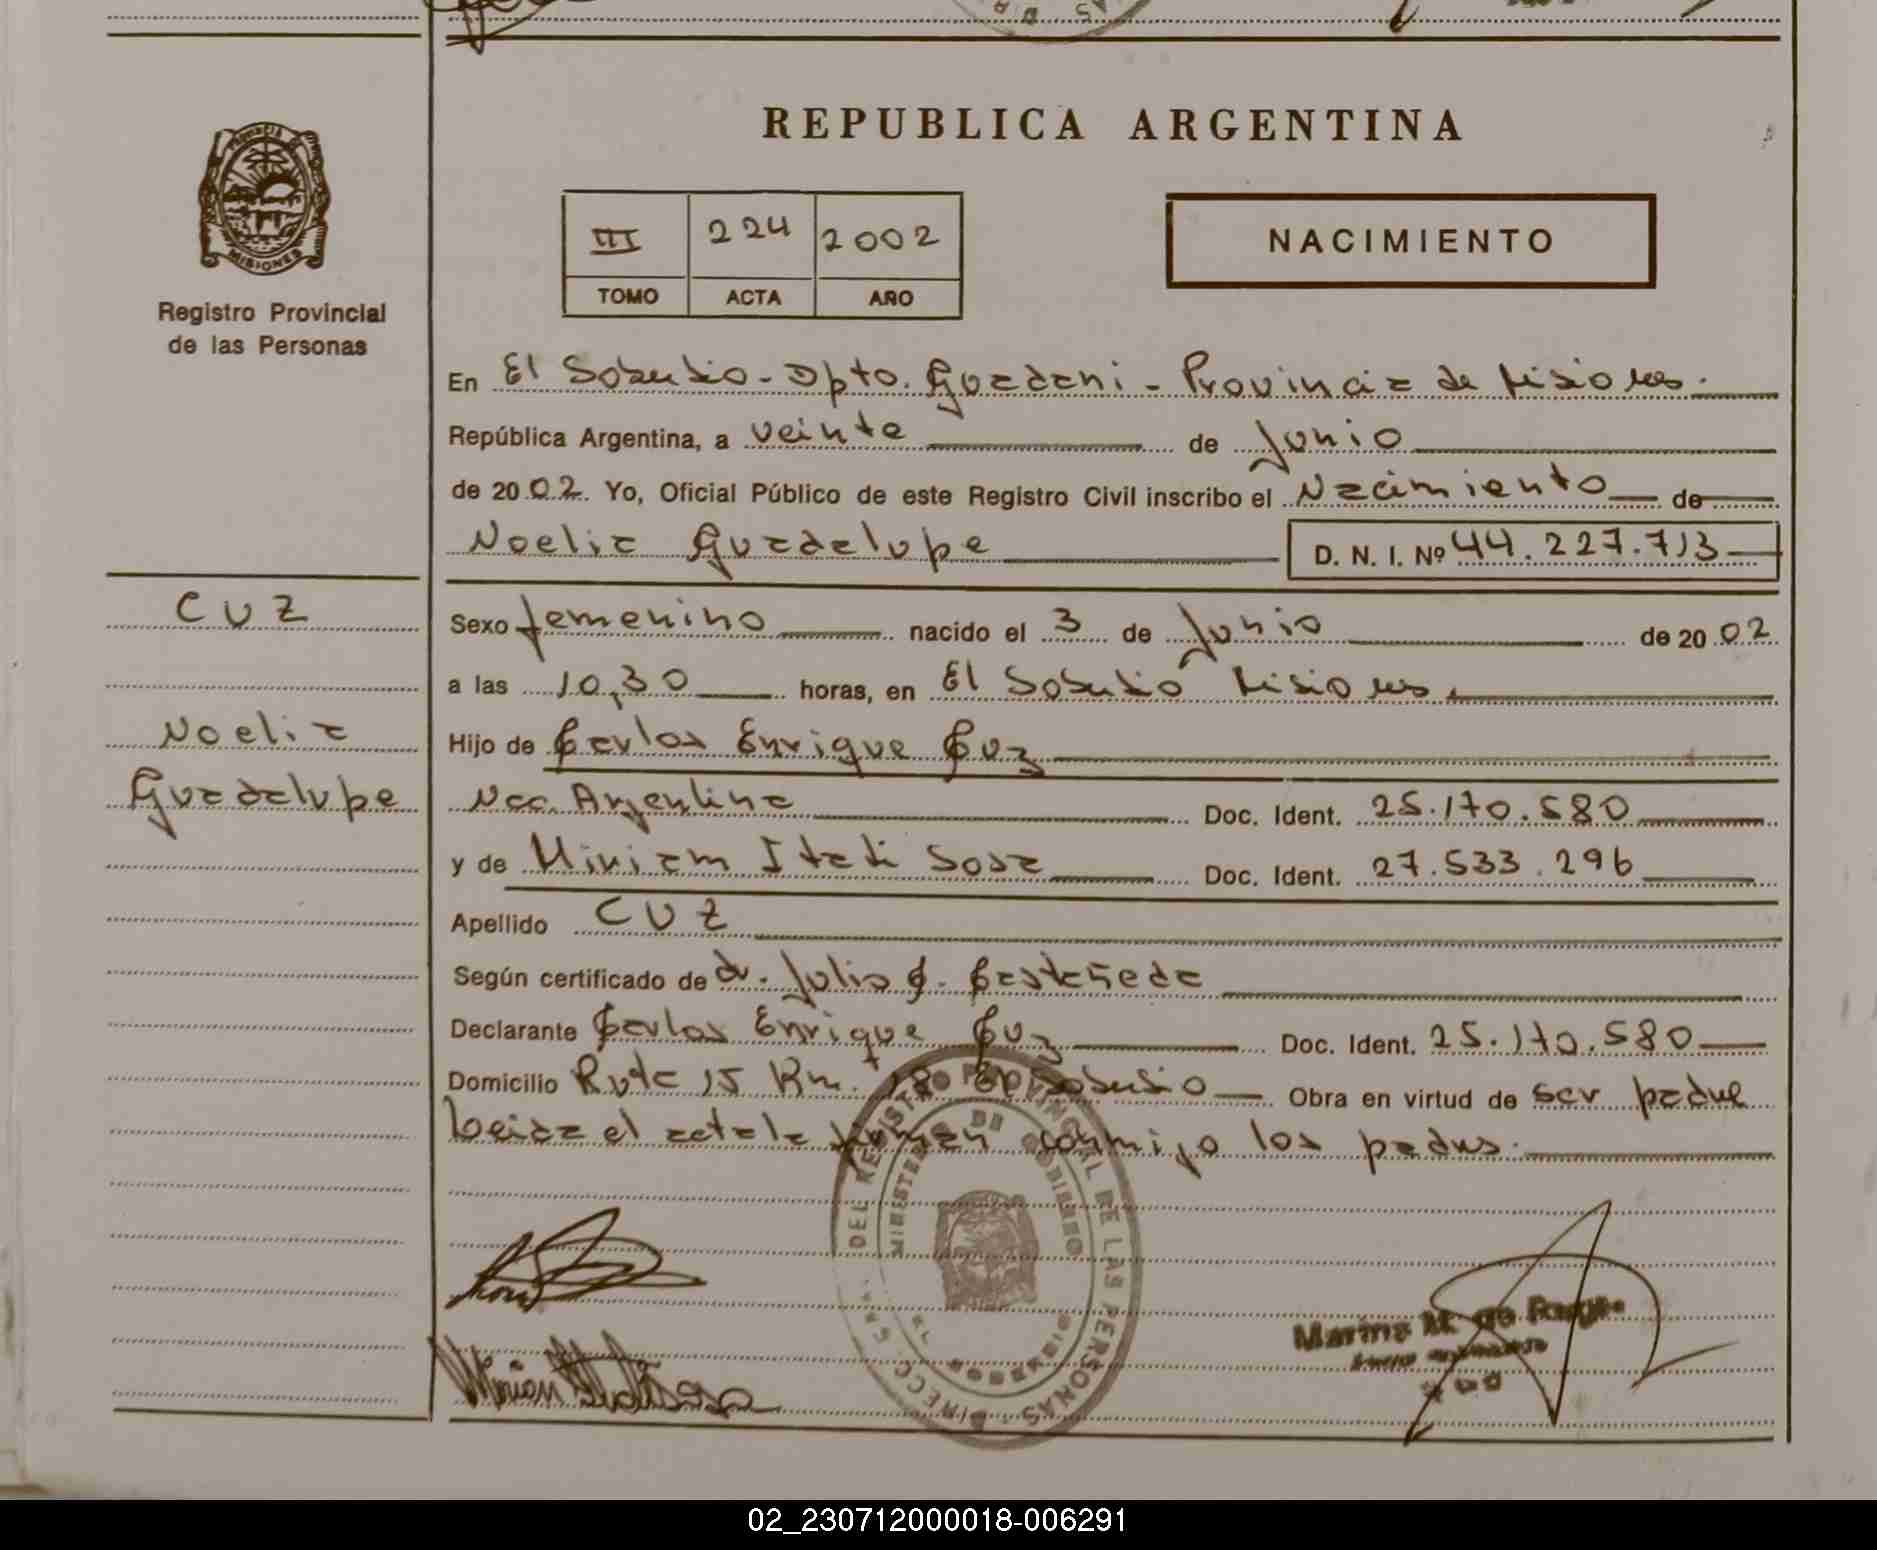 REPUBLICA ARGENTINA
PROVINCIA
MISIONES
Registro Provincial
de las Personas
III 224 2002
TOMO ACTA AÑO
NACIMIENTO
En El Soberbio - Dpto. Guaraní - Provincia de Misiones.
República Argentina, a veinte de Junio
de 2002. Yo, Oficial Público de este Registro Civil inscribo el Nacimiento de
Noelia Guadalupe D. N. I. Nº 44.227.713
CUZ
Noelia
Guadalupe
Sexo femenino nacido el 3 de Junio de 2002
a las 10,30 horas, en El Soberbio Misiones.
Hijo de Carlos Enrique Cuz
Nac. Argentina Doc. Ident. 25.170.580
y de Miriam Itati Sosa Doc. Ident. 27.533.296
Apellido CUZ
Según certificado de dr. Julio C. Castañeda
Declarante Carlos Enrique Cuz Doc. Ident. 25.170.580
Domicilio Ruta 15 Km. 18 El Soberbio Obra en virtud de ser padre
Leida el acta la firman conmigo los padres.
DIRECC. GRAL. DEL REGISTRO PROVINCIAL DE LAS PERSONAS
MINISTERIO DE GOBIERNO
Miriam Itati Sosa
Marina M. de
02_230712000018-006291